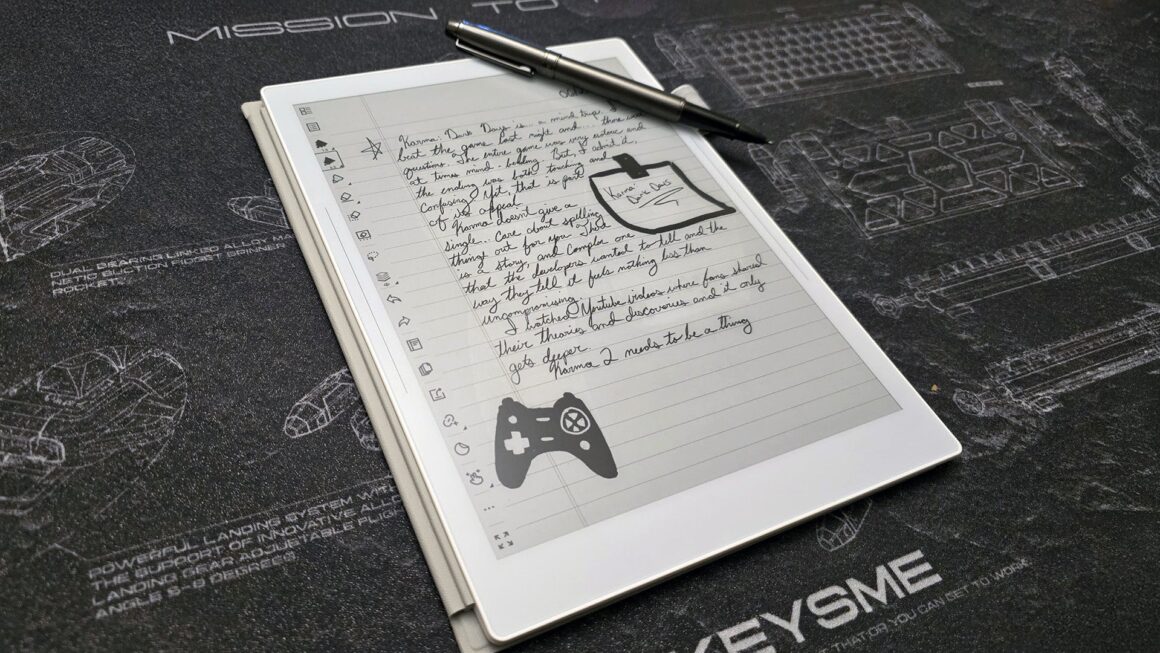 MISSION TO
Karma: Dark Days is a mind trip. I
beat the game last night and... there are
questions. The entire game was very intense and
at times mind-bending. But, I admit it,
the ending was both touching and
confusing. Yet, that is part
of its appeal.
Karma doesn't give a
single... care about spelling
things out for you. This
is a story, and complex one
that the developers wanted to tell and the
way they tell it feels nothing less than
uncompromising.
I watched Youtube videos where fans shared
their theories and discoveries and it only
gets deeper.
Karma 2 needs to be a thing
Karma:
Dark Days
DUAL BEARING-LINKED ALLOY
NETIC SUCTION FIDGET SPINNER
ROCKET.
POWERFUL LANDING SYSTEM WITH
THE SUPPORT OF INNOVATIVE
LANDING GEAR ADJUSTABLE FLIGHT
ANGLE 5-8 DEGREES
KEYSME
THAT OR YOU CAN GET TO WORK